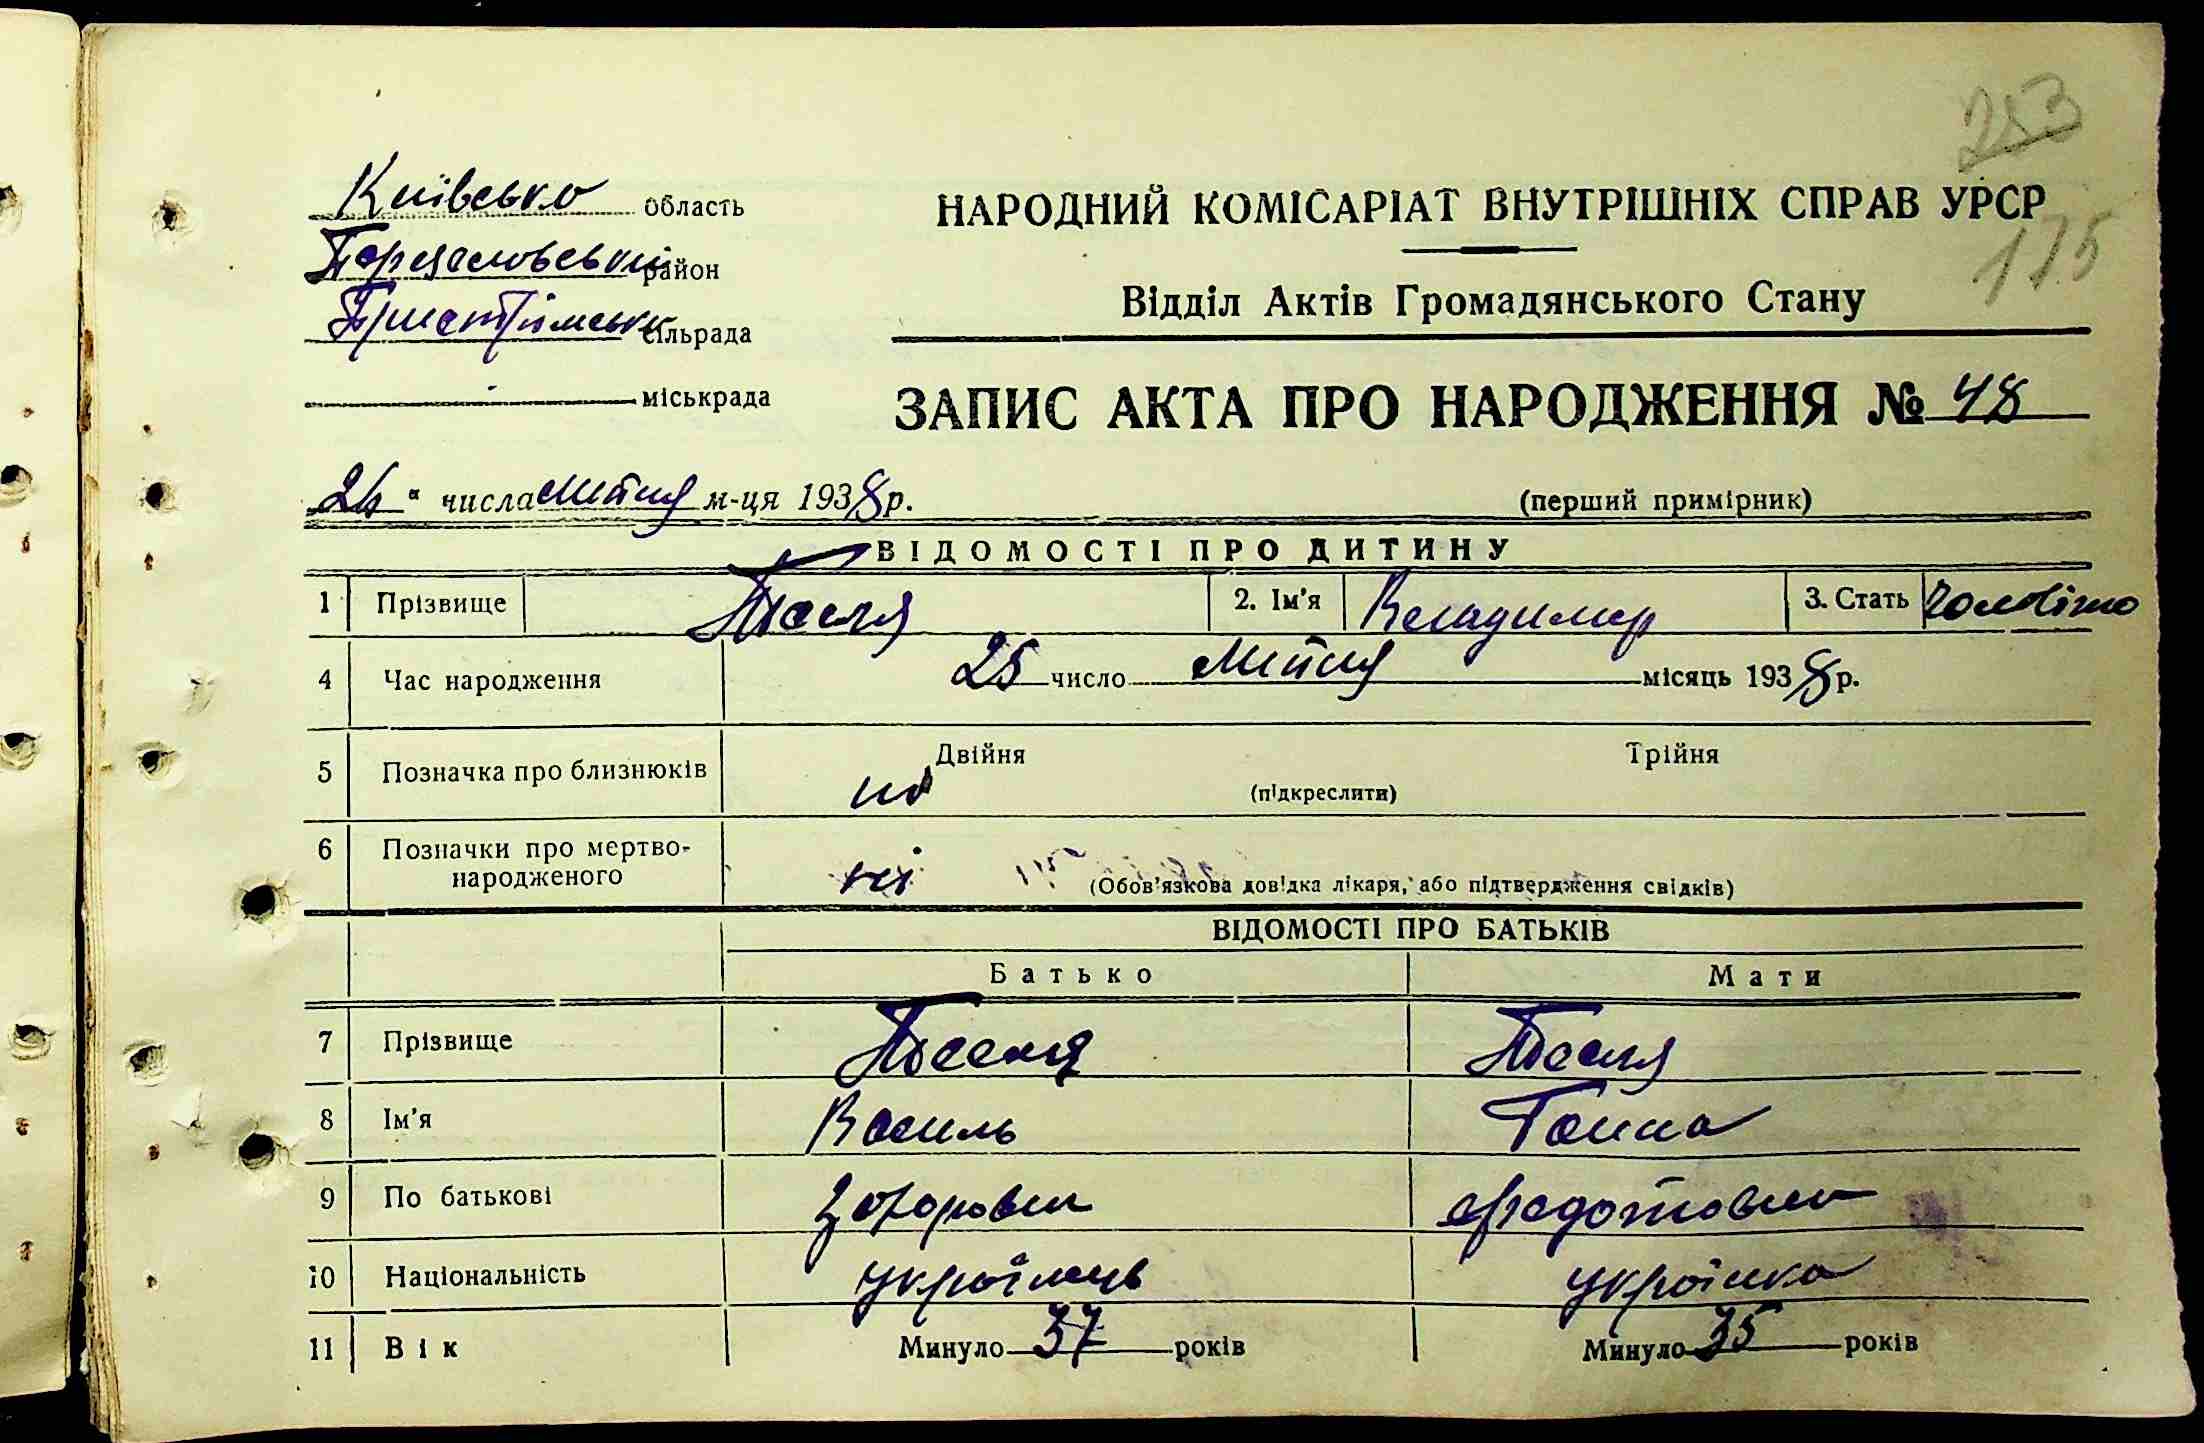 253
Київсько область
НАРОДНИЙ КОМІСАРІАТ ВНУТРІШНІХ СПРАВ УРСР
175
район
Відділ Актів Громадянського Стану
сільрада
міськрада
ЗАПИС АКТА ПРО НАРОДЖЕННЯ № 48
26 " числа липня м-ця 1938 р.
(перший примірник)
ВІДОМОСТІ ПРО ДИТИНУ
1 Прізвище Тесля 2. Ім'я Владимир 3. Стать
4 Час народження 25 число липня місяць 1938 р.
5 Позначка про близнюків ні Двійня Трійня
(підкреслити)
6 Позначки про мертво-
народженого ні (Обов'язкова довідка лікаря, або підтвердження свідків)
ВІДОМОСТІ ПРО БАТЬКІВ
Батько Мати
7 Прізвище Тесля Тесля
8 Ім'я Василь Ганна
9 По батькові Федотовна
10 Національність українець українка
11 Вік Минуло 37 років Минуло 35 років